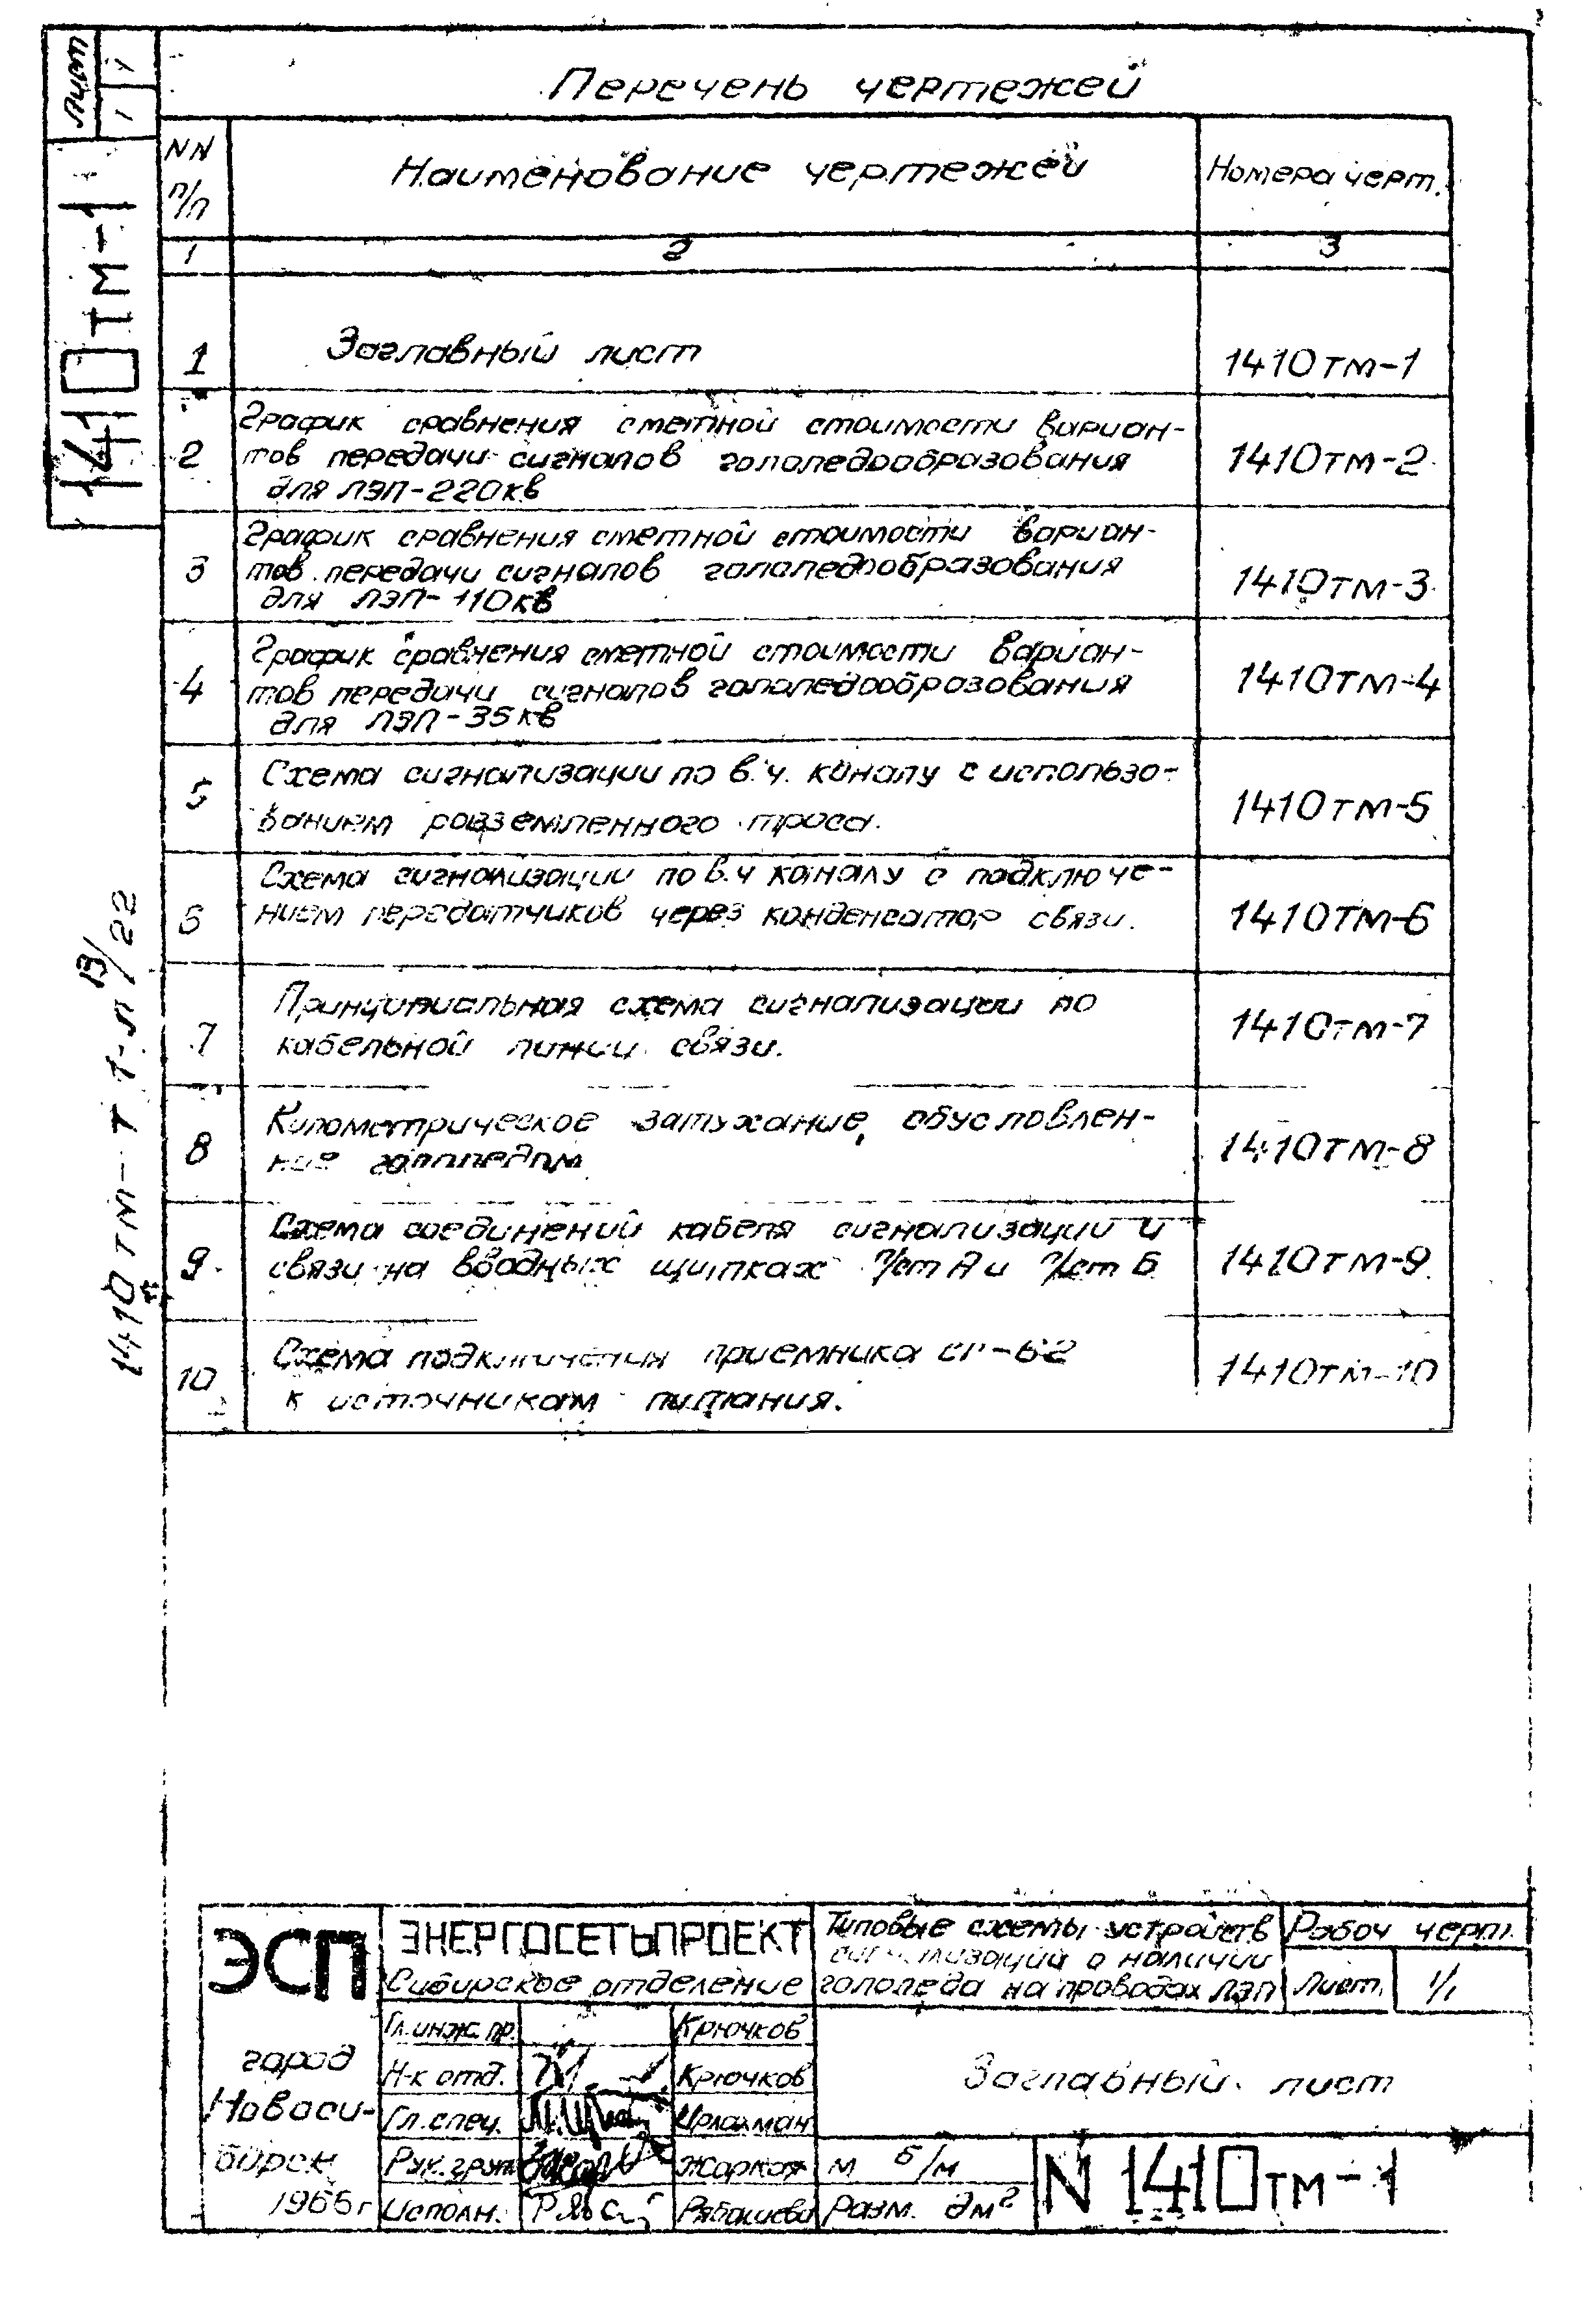 лист
1
1
1410тм-1
1410тм-т т-л 13/22
Перечень чертежей
NN п/п
Наименование чертежей
Номера черт.
1
2
3
1
Заглавный лист
1410тм-1
2
График сравнения сметной стоимости вариан-
тов передачи сигналов гололедообразования
для ЛЭП-220кв
1410тм-2
3
График сравнения сметной стоимости вариан-
тов передачи сигналов гололедообразования
для ЛЭП-110кв
1410тм-3
4
График сравнения сметной стоимости вариан-
тов передачи сигналов гололедообразования
для ЛЭП-35кв
1410тм-4
5
Схема сигнализации по в.ч. каналу с использо-
ванием разземленного троса.
1410тм-5
6
Схема сигнализации по в.ч каналу с подключе-
нием передатчиков через конденсатор связи.
1410тм-6
7
Принципиальная схема сигнализации по
кабельной линии связи.
1410тм-7
8
Километрическое затухание, обусловлен-
ное гололедом
1410тм-8
9
Схема соединений кабеля сигнализации и
связи на вводных щитках п/ст А и п/ст Б
1410тм-9
10
Схема подключения приемника СГ-62
к источникам питания.
1410тм-10
ЭСП
ЭНЕРГОСЕТЬПРОЕКТ
Сибирское отделение
Типовые схемы устройств
сигнализаций о наличии
гололеда на проводах ЛЭП
Рабоч черт.
Лист
1/1
город
Новоси-
бирск
1966г
Гл.инж.пр.
Крючков
Н-к отд.
Крючков
Гл.спец.
Рук.груп
Жаркая
Исполн.
Заглавный лист
М б/м
Разм. дм²
N 1410тм-1